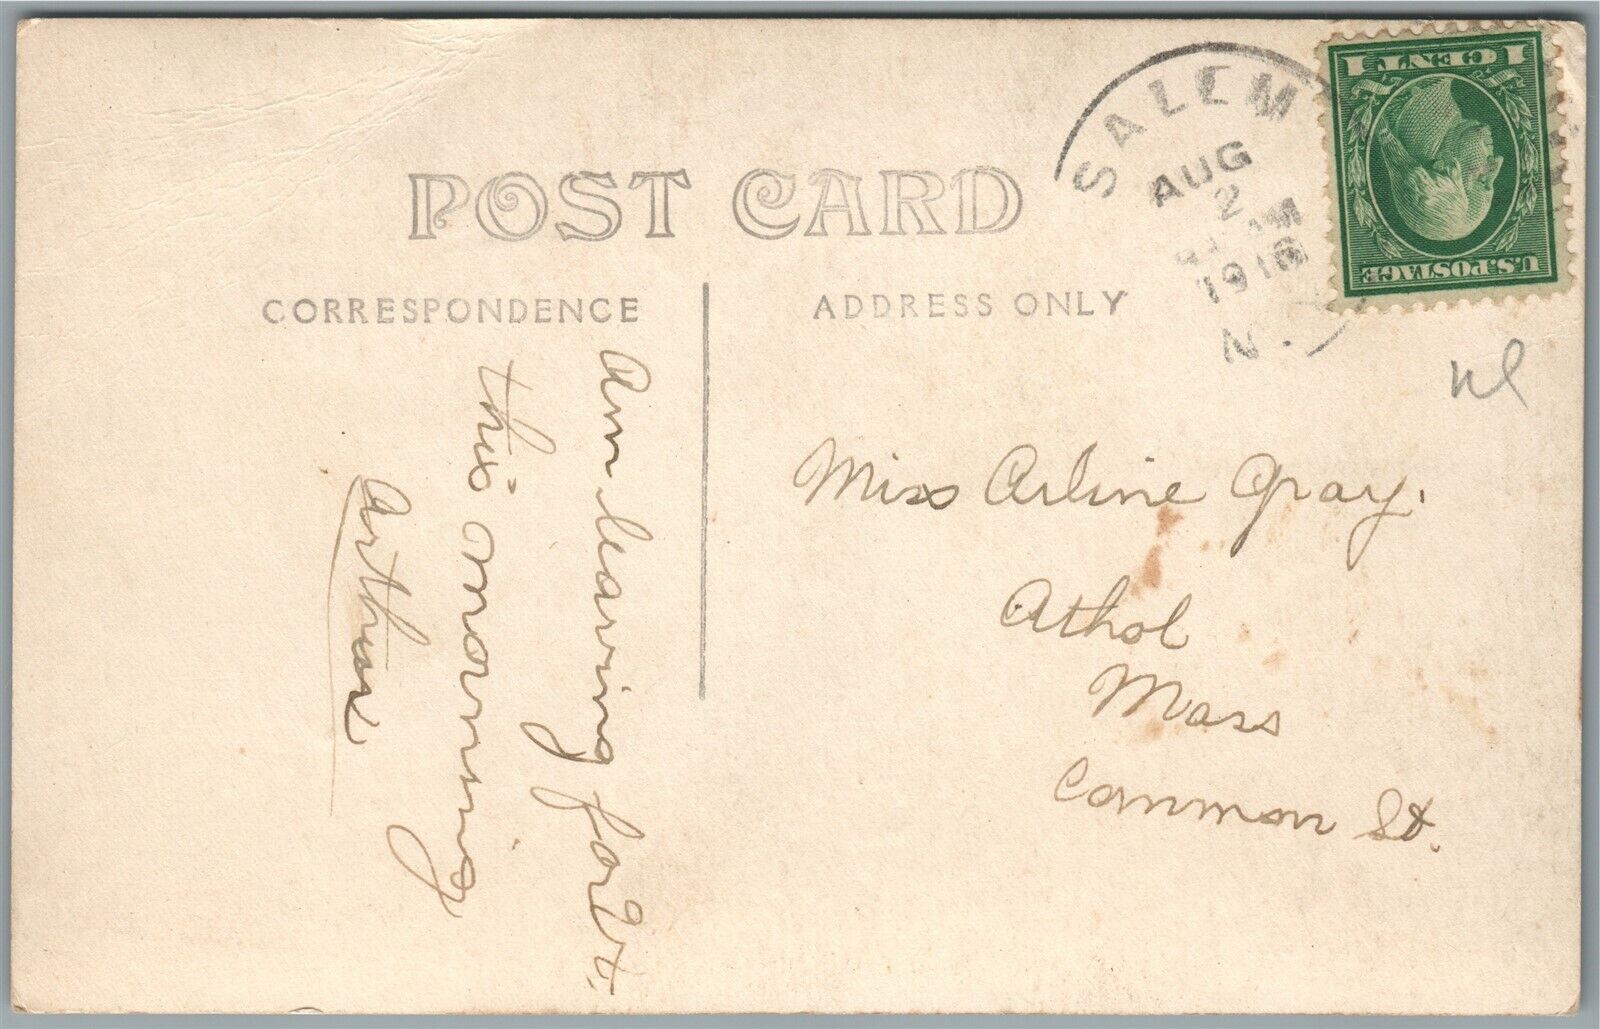 POST CARD
CORRESPONDENCE
ADDRESS ONLY
SALEM
AUG
2
M
191
N.
1 CENT 1
U.S. POSTAGE
Am leaving for
this morning
Arthur
Miss Arline Gray.
Athol
Mass
Common St.